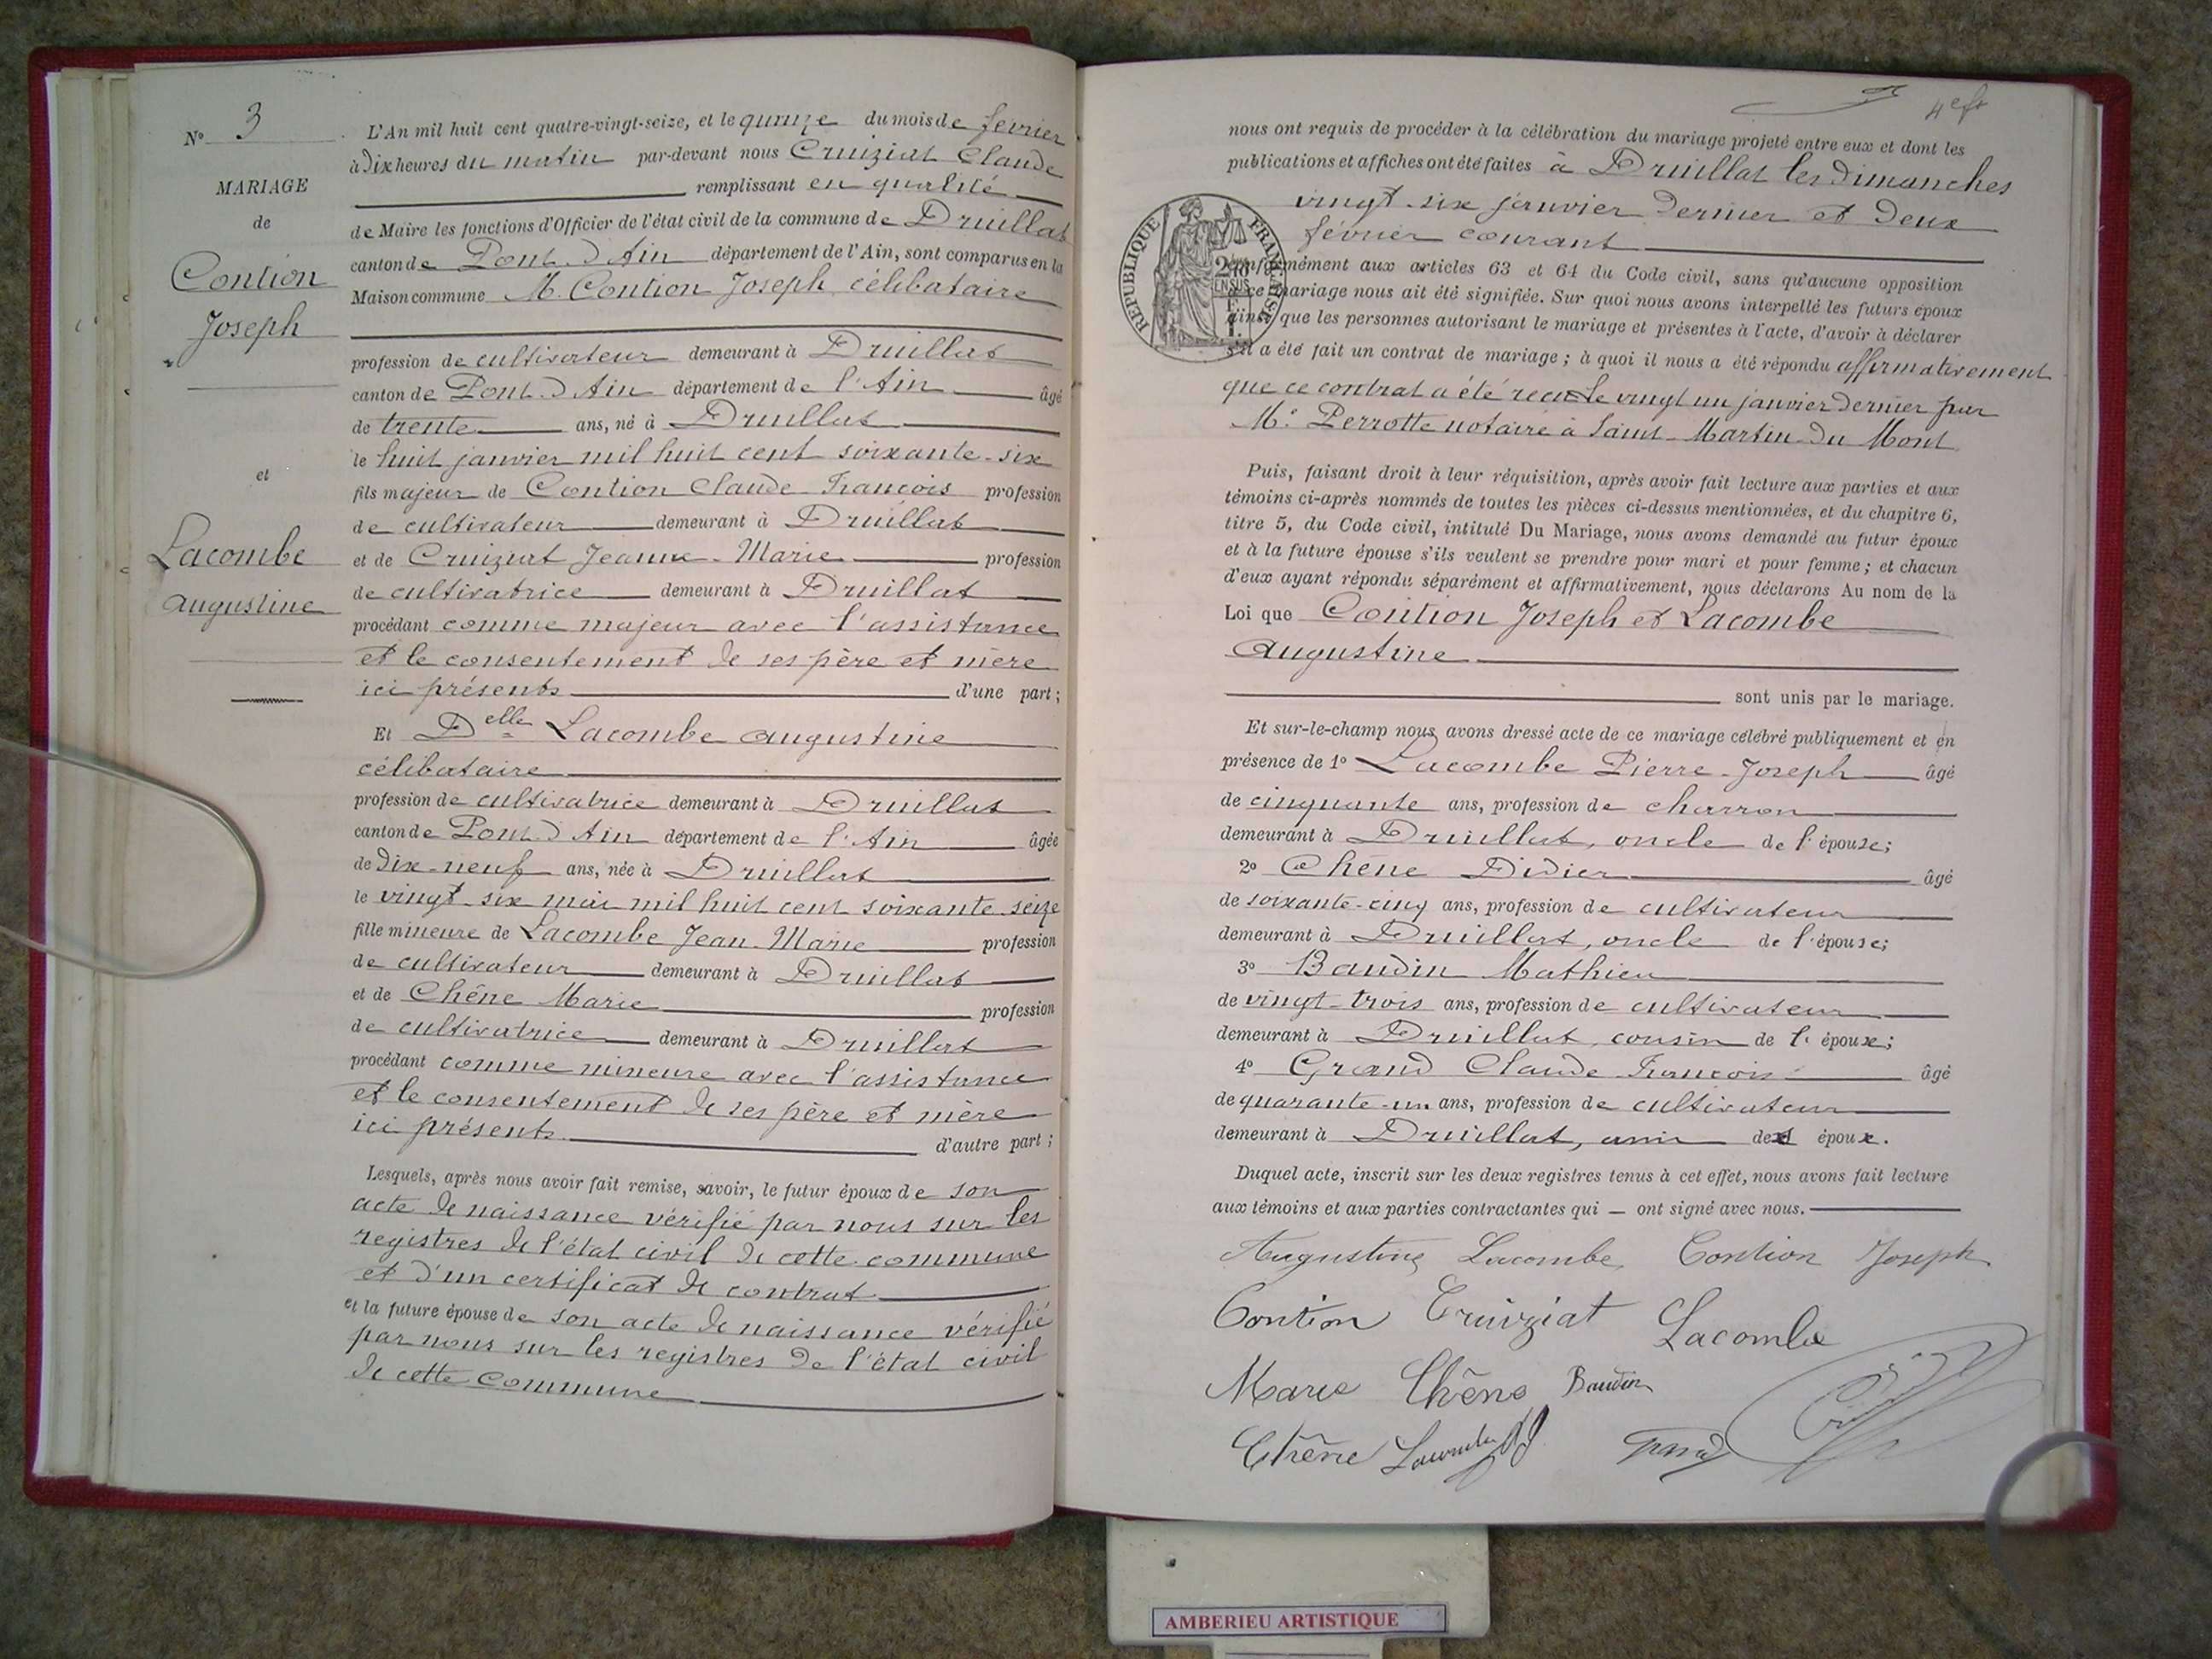 N° 3
MARIAGE
de
Contion
Joseph
et
Lacombe
Augustine
L'An mil huit cent quatre-vingt-seize, et le quinze du mois de février
à dix heures du matin par-devant nous Cruiziat Claude
remplissant en qualité
de Maire les fonctions d'Officier de l'état civil de la commune de Druillat
canton de Pont-d'Ain département de l'Ain, sont comparus en la
Maison commune M. Contion Joseph, célibataire
profession de cultivateur demeurant à Druillat
canton de Pont-d'Ain département de l'Ain âgé
de trente ans, né à Druillat
le huit janvier mil huit cent soixante-six
fils majeur de Contion Claude François profession
de cultivateur demeurant à Druillat
et de Cruiziat Jeanne-Marie profession
de cultivatrice demeurant à Druillat
procédant comme majeur avec l'assistance
et le consentement de ses père et mère
ici présents d'une part ;
Et Delle Lacombe Augustine
célibataire
profession de cultivatrice demeurant à Druillat
canton de Pont-d'Ain département de l'Ain âgée
de dix-neuf ans, née à Druillat
le vingt-six mai mil huit cent soixante-seize
fille mineure de Lacombe Jean-Marie profession
de cultivateur demeurant à Druillat
et de Chêne Marie profession
de cultivatrice demeurant à Druillat
procédant comme mineure avec l'assistance
et le consentement de ses père et mère
ici présents d'autre part ;
Lesquels, après nous avoir fait remise, savoir, le futur époux de son
acte de naissance vérifié par nous sur les
registres de l'état civil de cette commune
et d'un certificat de contrat
et la future épouse de son acte de naissance vérifié
par nous sur les registres de l'état civil
de cette commune
nous ont requis de procéder à la célébration du mariage projeté entre eux et dont les
publications et affiches ont été faites à Druillat les dimanches
vingt-six janvier dernier et deux
février courant
REPUBLIQUE FRANÇAISE
conformément aux articles 63 et 64 du Code civil, sans qu'aucune opposition
à ce mariage nous ait été signifiée. Sur quoi nous avons interpellé les futurs époux
ainsi que les personnes autorisant le mariage et présentes à l'acte, d'avoir à déclarer
s'il a été fait un contrat de mariage ; à quoi il nous a été répondu affirmativement
que ce contrat a été reçu le vingt un janvier dernier par
Me Perrotte notaire à Saint-Martin-du Mont
Puis, faisant droit à leur réquisition, après avoir fait lecture aux parties et aux
témoins ci-après nommés de toutes les pièces ci-dessus mentionnées, et du chapitre 6,
titre 5, du Code civil, intitulé Du Mariage, nous avons demandé au futur époux
et à la future épouse s'ils veulent se prendre pour mari et pour femme ; et chacun
d'eux ayant répondu séparément et affirmativement, nous déclarons Au nom de la
Loi que Contion Joseph et Lacombe
Augustine
sont unis par le mariage.
Et sur-le-champ nous avons dressé acte de ce mariage célébré publiquement et en
présence de 1° Lacombe Pierre-Joseph âgé
de cinquante ans, profession de charron
demeurant à Druillat, oncle de l'épouse;
2° Chêne Didier âgé
de soixante-cinq ans, profession de cultivateur
demeurant à Druillat, oncle de l'épouse;
3° Baudin Mathieu
de vingt-trois ans, profession de cultivateur
demeurant à Druillat, cousin de l'époux;
4° Grand Claude François âgé
de quarante-un ans, profession de cultivateur
demeurant à Druillat, ami des époux.
Duquel acte, inscrit sur les deux registres tenus à cet effet, nous avons fait lecture
aux témoins et aux parties contractantes qui — ont signé avec nous.
Augustine Lacombe Contion Joseph
Contion Cruiziat Lacombe
Marie Chêne Baudin
Chêne Lacombe Grand
AMBERIEU ARTISTIQUE